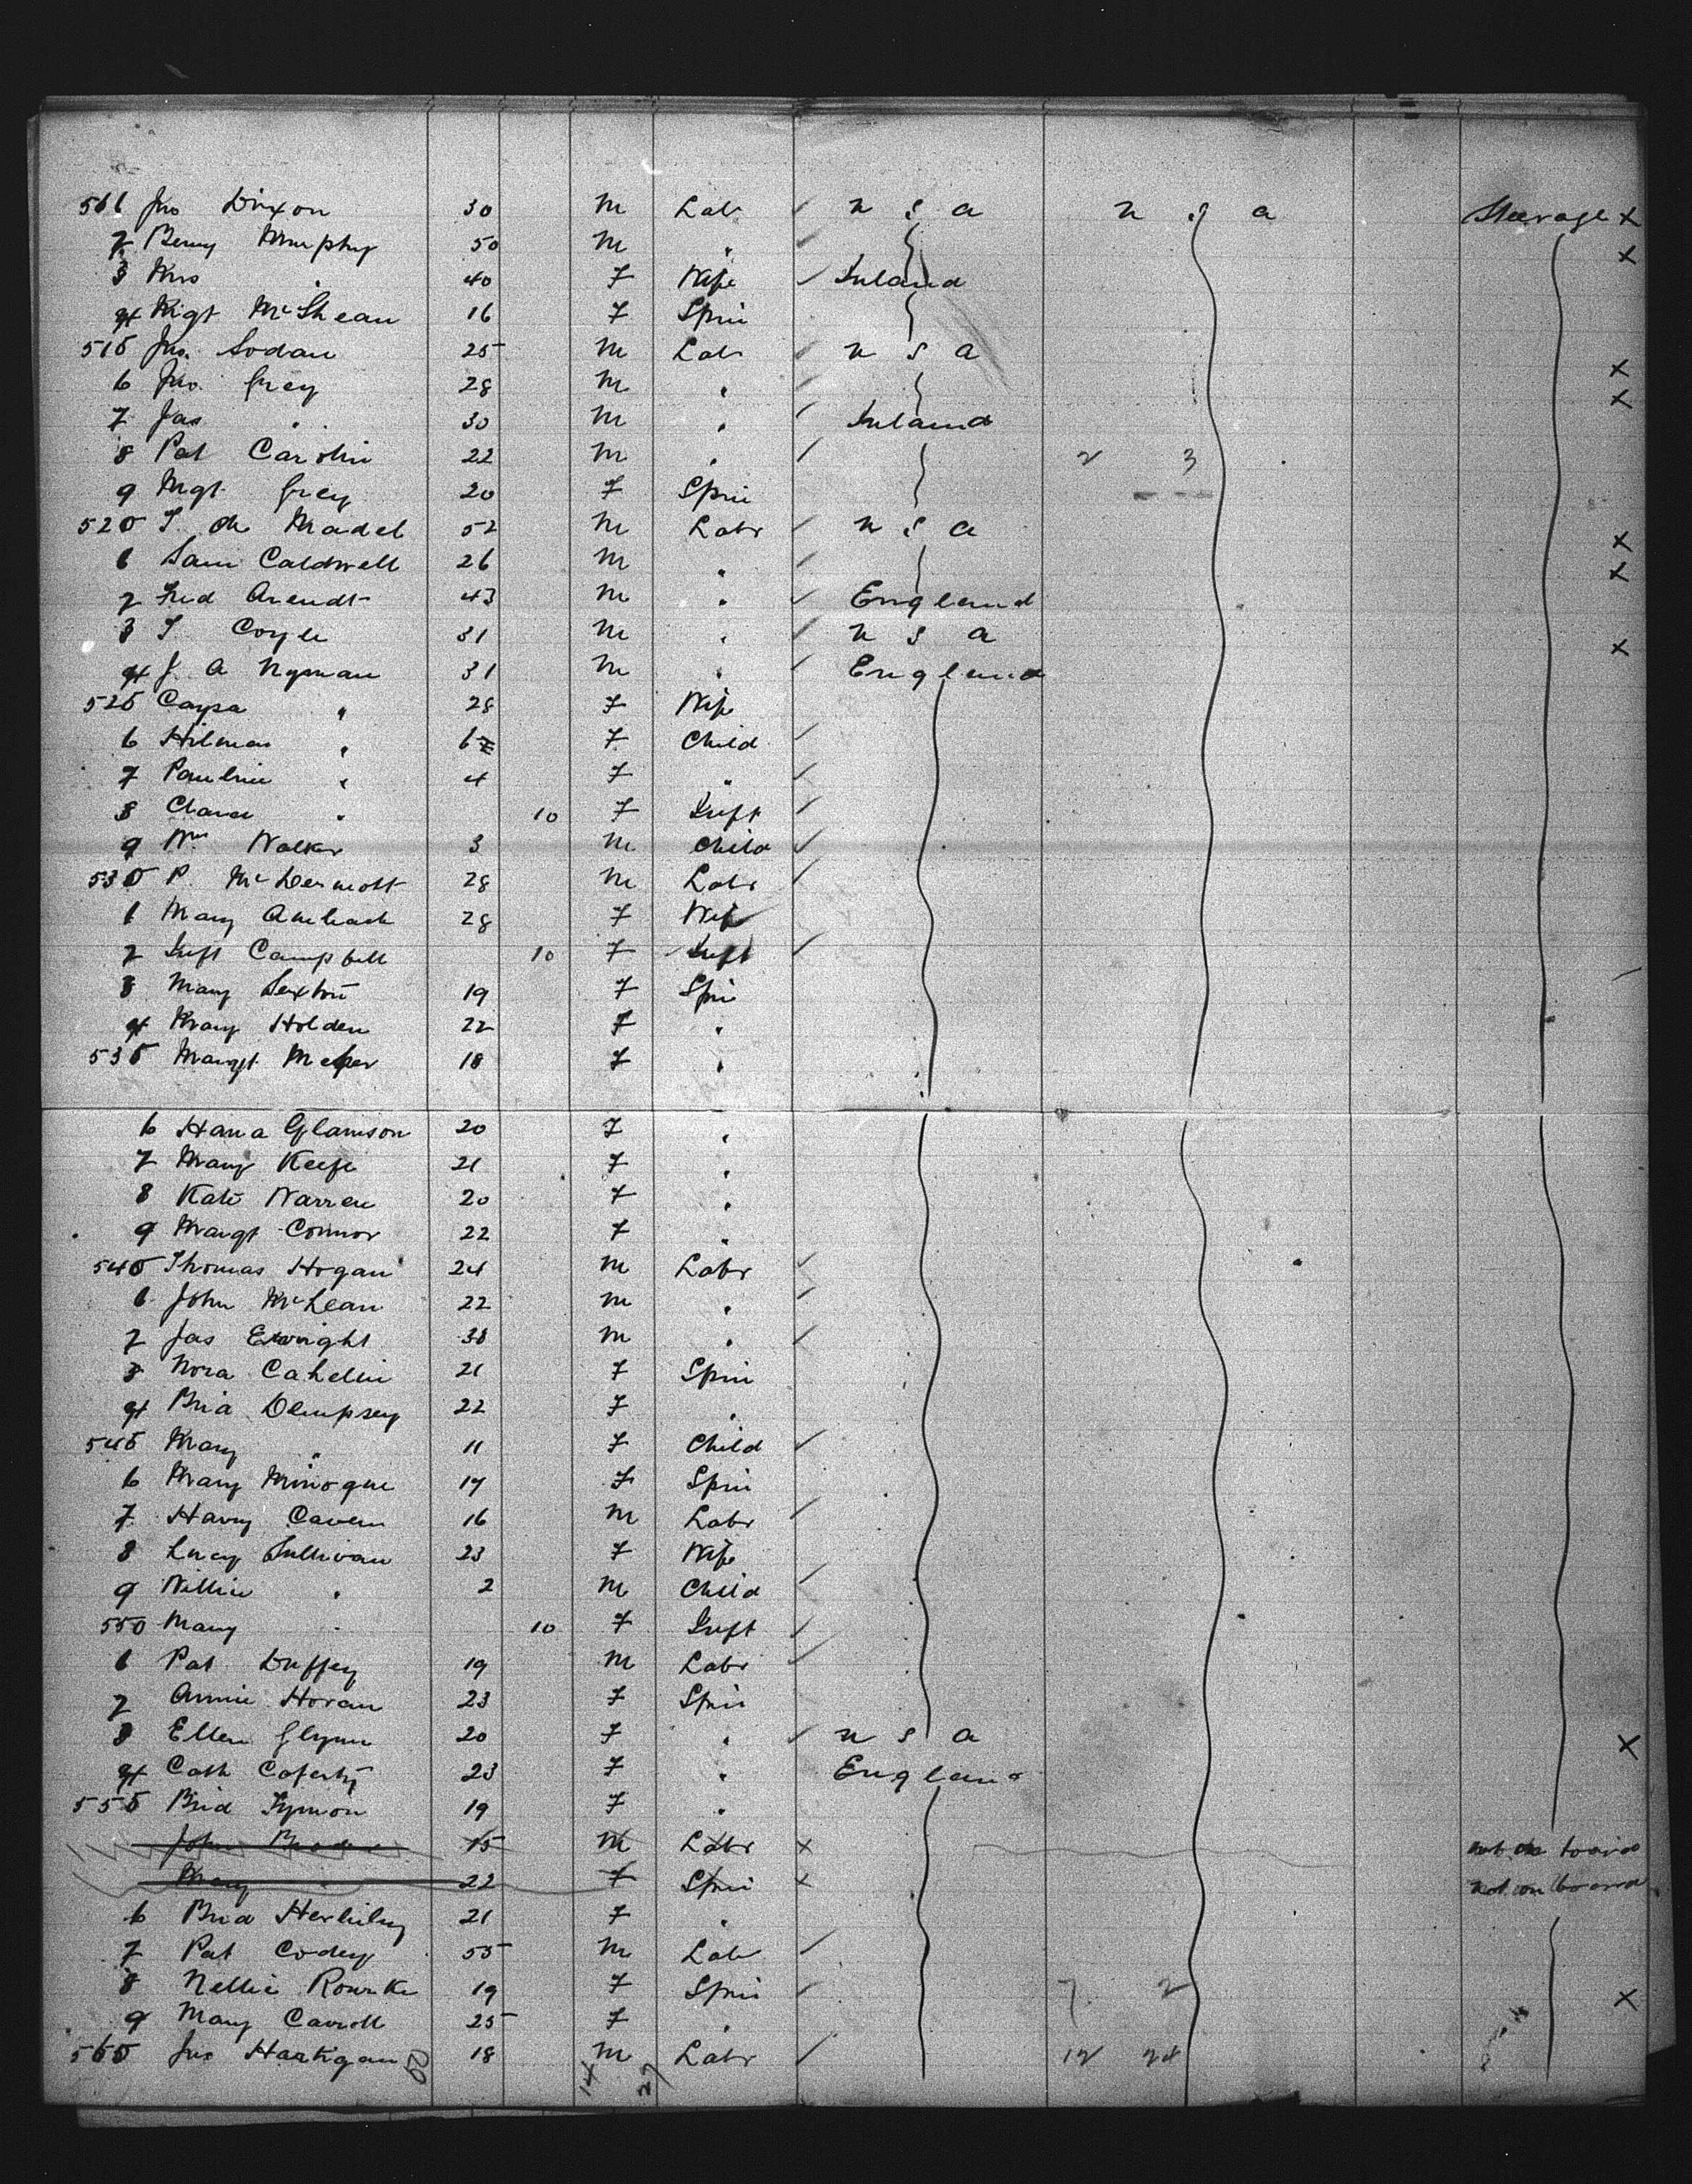 511 Jno Dixon 30 m Labr u s a u s a Steerage x
2 Benny Murphy 50 m " x
3 Mrs " 40 F Wife Ireland
4 Mgt McShean 16 F Spin
515 Jno. 25 m Labr u s a x
6 Jno. Grey 28 m " x
7 Jas " 30 m " Ireland
8 Pat Carolin 22 m " 2 3
9 Mgt Grey 20 F Spin
520 52 m Labr u s a x
1 Sam Caldwell 26 m " x
2 Fred Arendt 43 m " England
3 T Coyle 31 m " u s a x
4 J. A Nyman 31 m " England
525 " 28 F Wife
6 Hilma " 6 F Child
7 Pauline " 4 F "
8 Clara " 10 F Inft
9 Wm Walker 3 m Child
530 P. McDermott 28 m Labr
1 Mary 28 F Wife
2 Inft Campbell 10 F Inft
3 Mary Sexton 19 F Spin
4 Mary Holden 22 F "
535 Margt 18 F "
6 Hana 20 F "
7 Mary Keefe 21 F "
8 Kate Warren 20 F "
9 Margt Connor 22 F "
540 Thomas Hogan 24 m Labr
1 John McLean 22 m "
2 Jas 38 m "
3 Nora 21 F Spin
4 Brid Dempsey 22 F "
545 Mary " 11 F Child
6 Mary Minogue 17 F Spin
7 Harry 16 m Labr
8 Lucy Sullivan 23 F Wife
9 Willie " 2 m Child
550 Mary " 10 F Inft
1 Pat Duffey 19 m Labr
2 Annie Horan 23 F Spin
3 Ellen Glynn 20 F " u s a x
4 Cath 23 F " England
555 Brid 19 F "
John 15 m Labr x not on board
Mary " 22 F Spin x not on board
6 Brid Herlihy 21 F "
7 Pat Codey 55 m Labr
8 Nellie Rourke 19 F Spin 7 2 x
9 Mary Carroll 25 F "
560 Jno Hartigan 18 m Labr 12 24
50 14 27